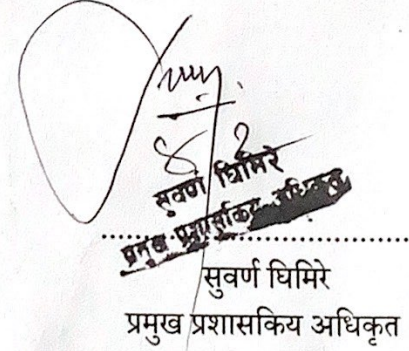 सुवर्ण घिमिरे
प्रमुख प्रशासकिय अधिकृत
सुवर्ण घिमिरे
प्रमुख प्रशासकिय अधिकृत